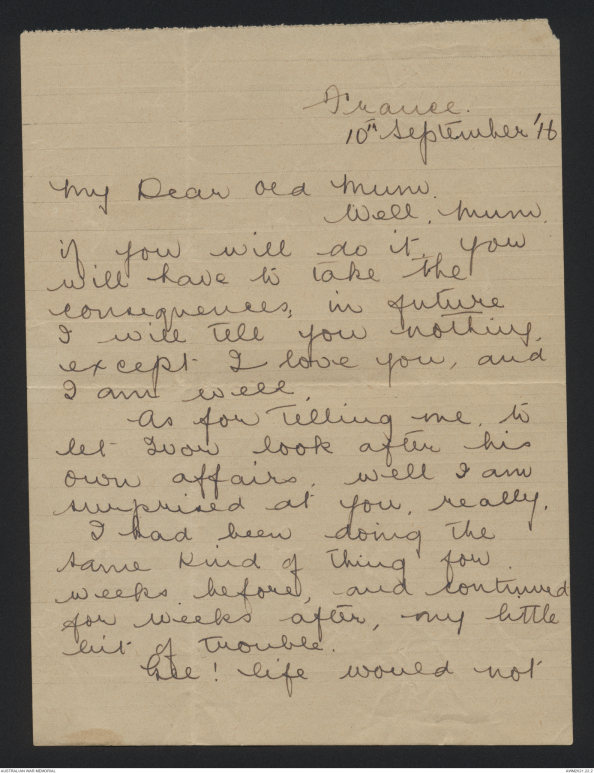 France.
10th September '16
My Dear old Mum.
Well, Mum,
if you will do it, you
will have to take the
consequences, in future
I will tell you nothing,
except I love you, and
I am well.
As for telling me, to
let Ivor look after his
own affairs, well I am
surprised at you, really.
I had been doing the
same kind of thing for
weeks before, and continued
for weeks after, my little
bit of trouble.
Gee! life would not
AUSTRALIAN WAR MEMORIAL